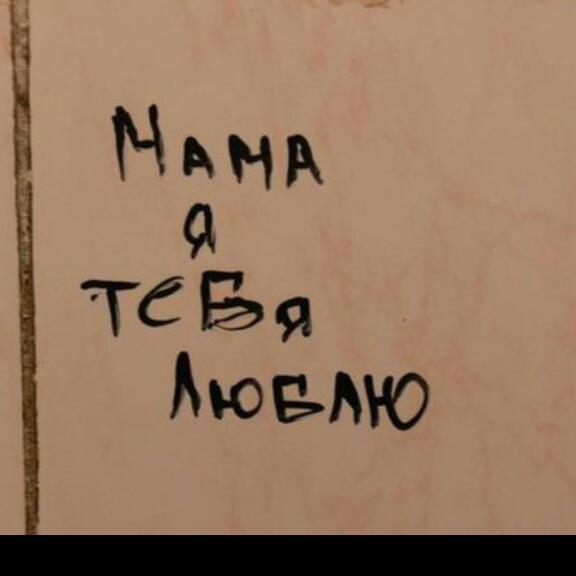 Мама
я
тебя
люблю